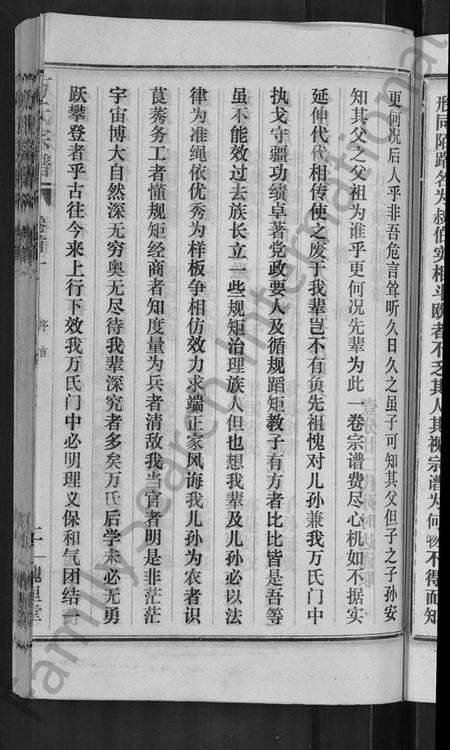 形同陌路名为叔伯实相斗殴者不乏其人其视宗谱为何物不得而知
更何况后人乎非吾危言耸听久日久之虽子可知其父但子之子孙安
知其父之父祖为谁乎更何况先辈为此一卷宗谱费尽心机如不据实
延伸代代相传使之废于我辈岂不有负先祖愧对儿孙兼我万氏门中
执戈守疆功绩卓著党政要人及循规蹈矩教子有方者比比皆是吾等
虽不能效过去族长立一些规矩治理族人但也想我辈及儿孙必以法
律为准绳依优秀为样板争相仿效力求端正家风诲我儿孙为农者识
莨莠务工者懂规矩经商者知度量为兵者清敌我当官者明是非茫茫
宇宙博大自然深无穷奥无尽待我辈深究者多矣万氏后学未必无勇
跃攀登者乎古往今来上行下效我万氏门中必明理义保和气团结一
万氏宗谱
卷首一
序言
槐里堂
FamilySearch International